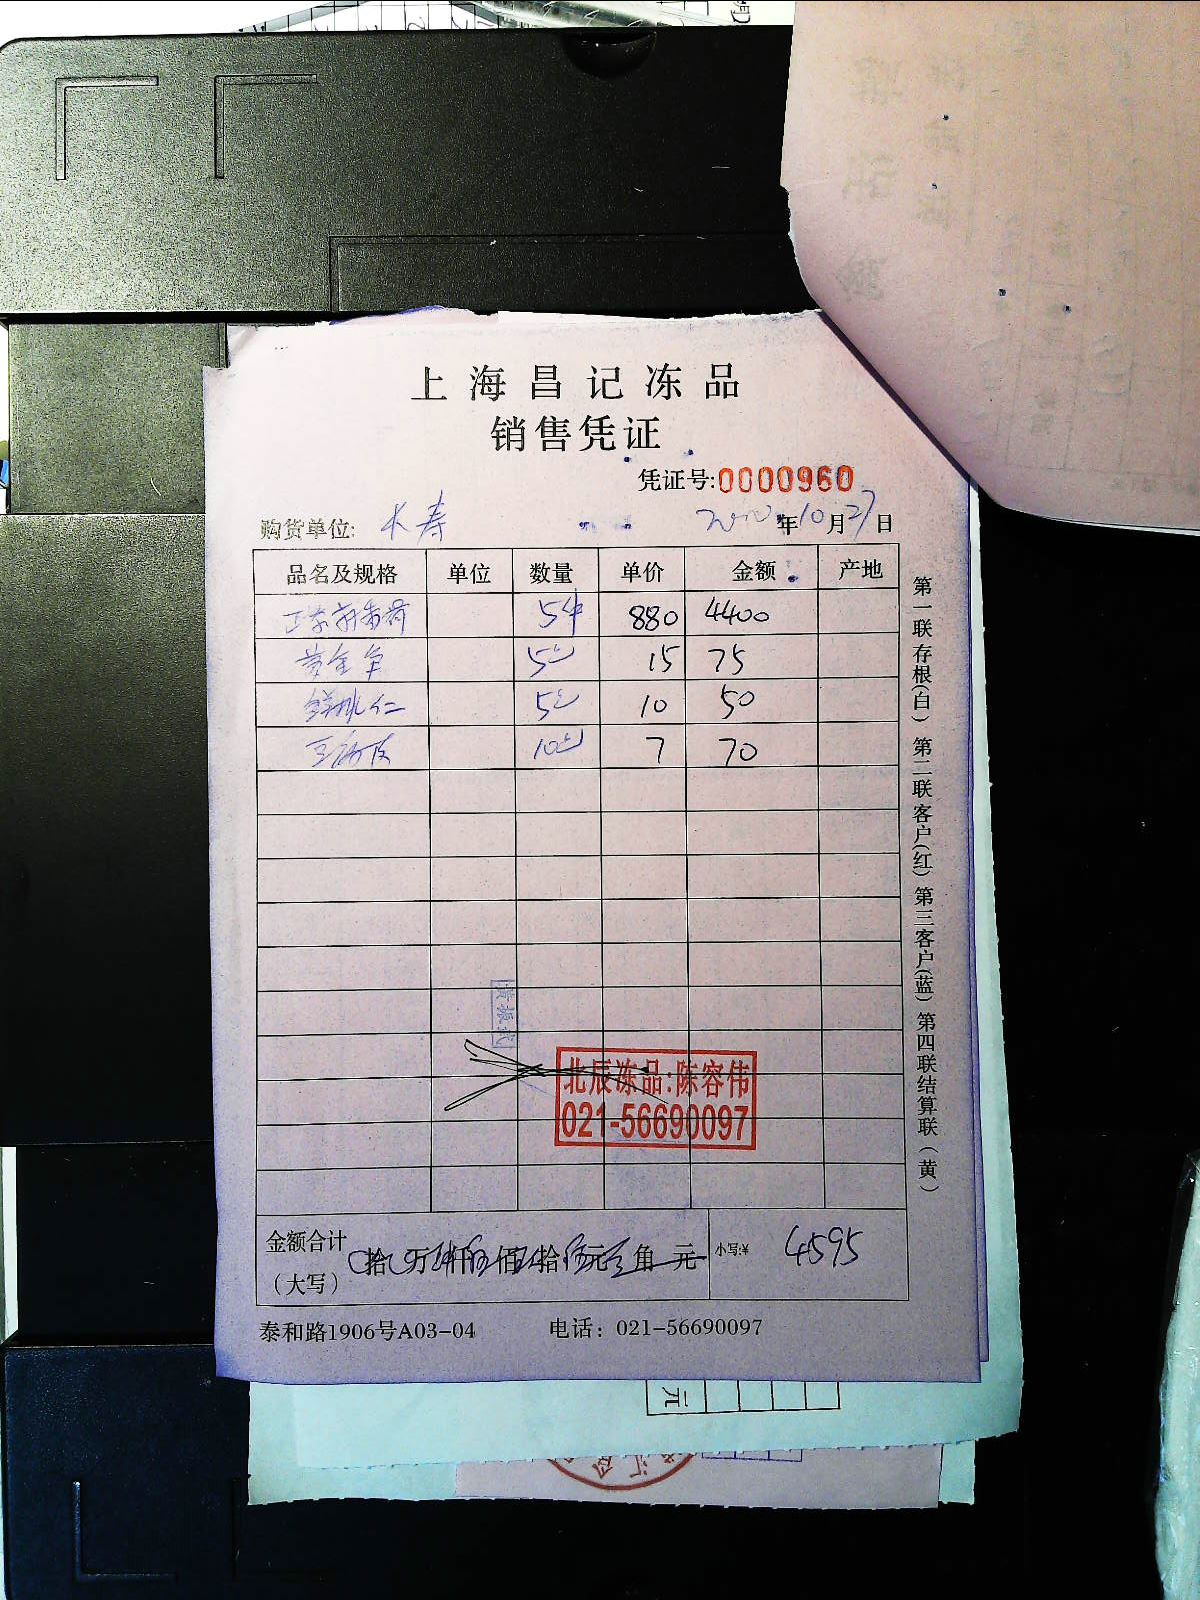 上海昌记冻品
销售凭证
凭证号:0000960
购货单位: 长寿 年10月27日
品名及规格 单位 数量 单价 金额 产地
5件 880 4400
黄金 5包 15 75
鲜桃仁 5包 10 50
豆腐皮 10包 7 70
北辰冻品:陈容伟
021-56690097
金额合计
(大写) 拾 万 仟 佰 拾 元 角 元 小写:¥ 4595
泰和路1906号A03-04 电话: 021-56690097
第一联存根(白) 第二联客户(红) 第三客户(蓝) 第四联结算联(黄)
元